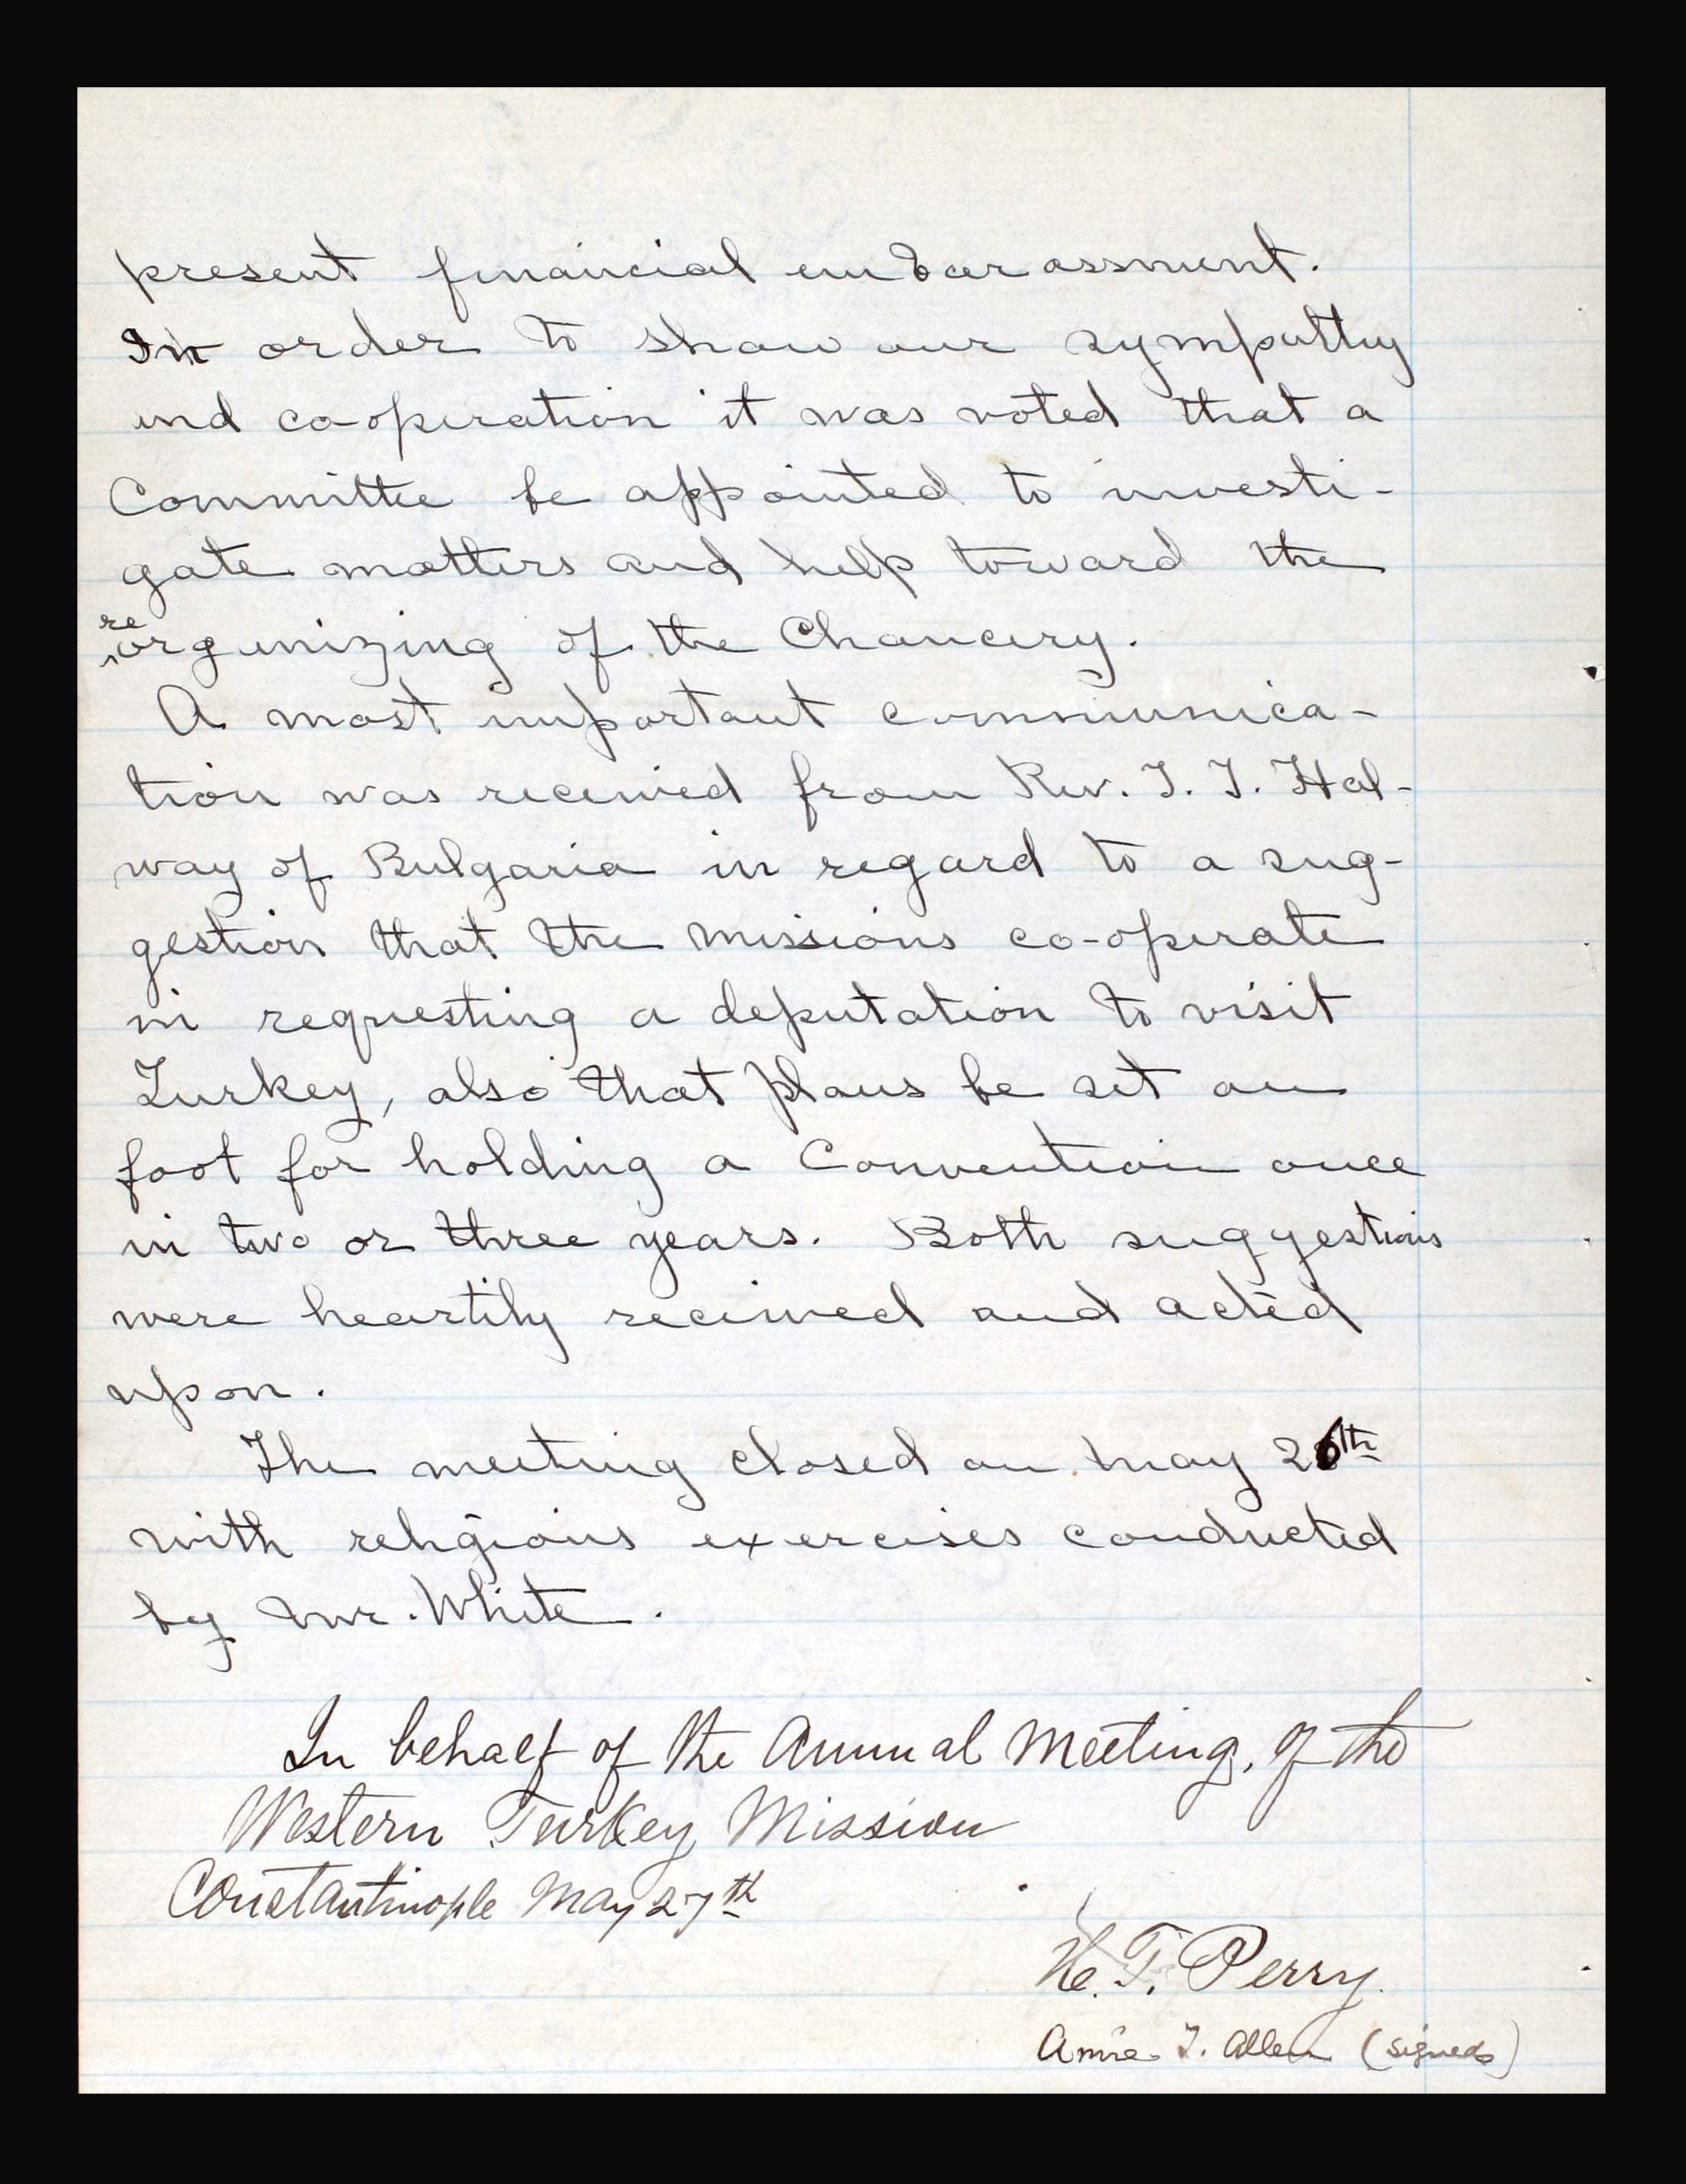 present financial embarassment.
In order to show our sympathy
and co-operation it was voted that a
Committee be appointed to investi-
gate matters and help toward the
reorganizing of the Chancery.
A most important communica-
tion was received from Rev. T. T. Hol-
way of Bulgaria in regard to a sug-
gestion that the missions co-operate
in requesting a deputation to visit
Turkey, also that plans be set on
foot for holding a Convention once
in two or three years. Both suggestions
were heartily received and acted
upon.
The meeting closed on May 26th
with religious exercises conducted
by Mr. White.
In behalf of the Annual Meeting, of the
Western Turkey Mission
Constantinople May 27th
H. T. Perry.
Annie T. Allen (signed)